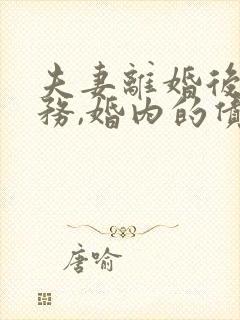 夫妻離婚後
務,婚内的債
唐喻